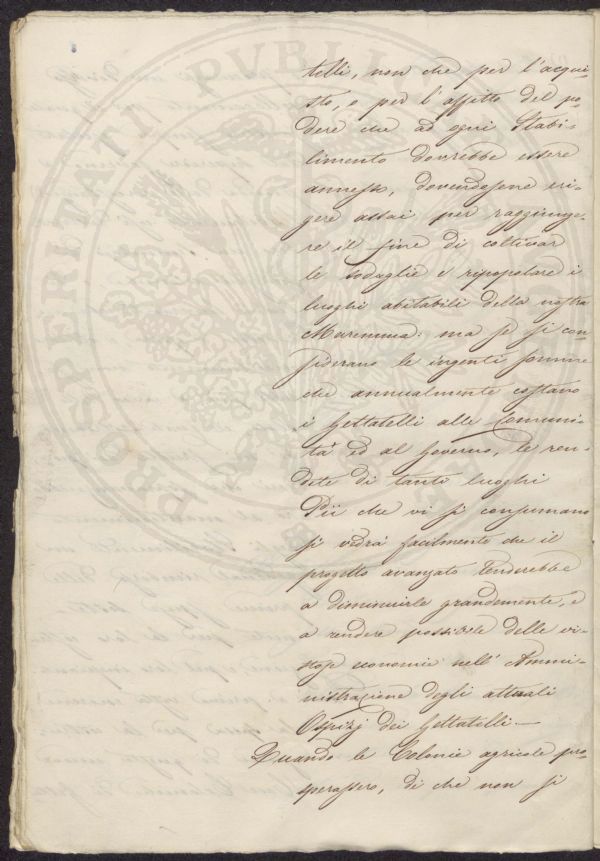 telli, non che per l'acqui-
sto, o per l'affitto del po-
dere che ad ogni Stabi-
limento dovrebbe essere
annesso, dovendosene eri-
gere assai per raggiunge-
re il fine di coltivar
le sodaglie e ripopolare i
luoghi abitabili della nostra
Maremma: ma se si con-
siderano le ingenti somme
che annualmente costano
i Gettatelli alle Comuni-
tà ed al Governo, le ren-
dite di tanti luoghi
Pii che vi si consumano
si vedrà facilmente che il
progetto avanzato tenderebbe
a diminuirle grandemente, e
a rendere possibile delle vi-
stose economie nell' Ammi-
nistrazione degli attuali
Ospizj dei Gettatelli.—
Quando le Colonie agricole pro-
sperassero, di che non si
PROSPERITATI PVBLI